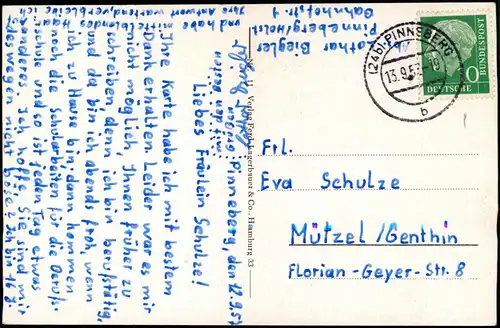 Lothar Biegler
Pinneberg/Holst
Bahnhofstr. 1
(24b) PINNEBERG
13.9.57
b
DEUTSCHE BUNDESPOST
10
Frl.
Eva Schulze
Mützel/Genthin
Florian-Geyer-Str. 8
Verlag Ferd. Lagerbauer & Co., Hamburg 33
Pinneberg, den 12.9.57
Liebes Fräulein Schulze!
Ihre Karte habe ich mit bestem
Dank erhalten. Leider war es mir
nicht möglich, Ihnen früher zu
schreiben denn ich bin berufstätig,
und da bin ich abends froh wenn
ich zu Hause bin. dann kommen
noch die Schularbeiten für die Berufs-
schule und so ist jeden Tag etwas
anderes. Ich hoffe, Sie sind mir
deswegen nicht böse. Ich bin 16 J.
und habe
Ihre Antwort wartend verbleibe ich